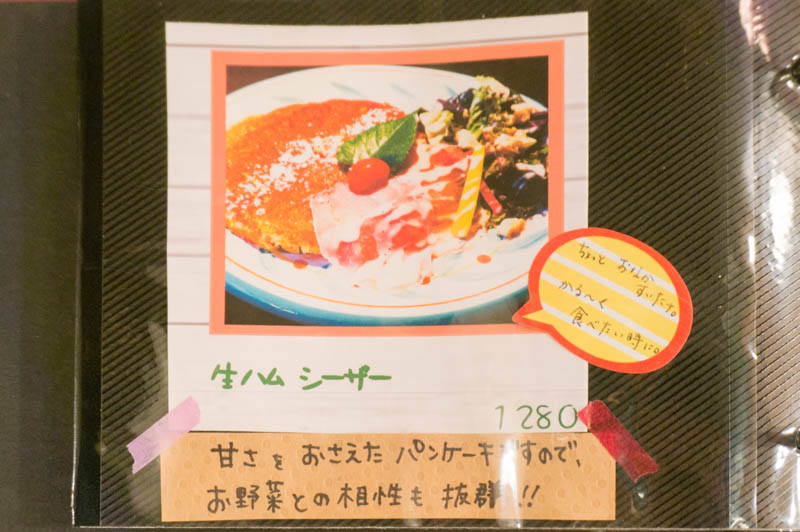 ちょっと おなか
すいたナ。
かる〜く
食べたい時に。
生ハム シーザー
1280
甘さを おさえた パンケーキですので、
お野菜との相性も 抜群!!